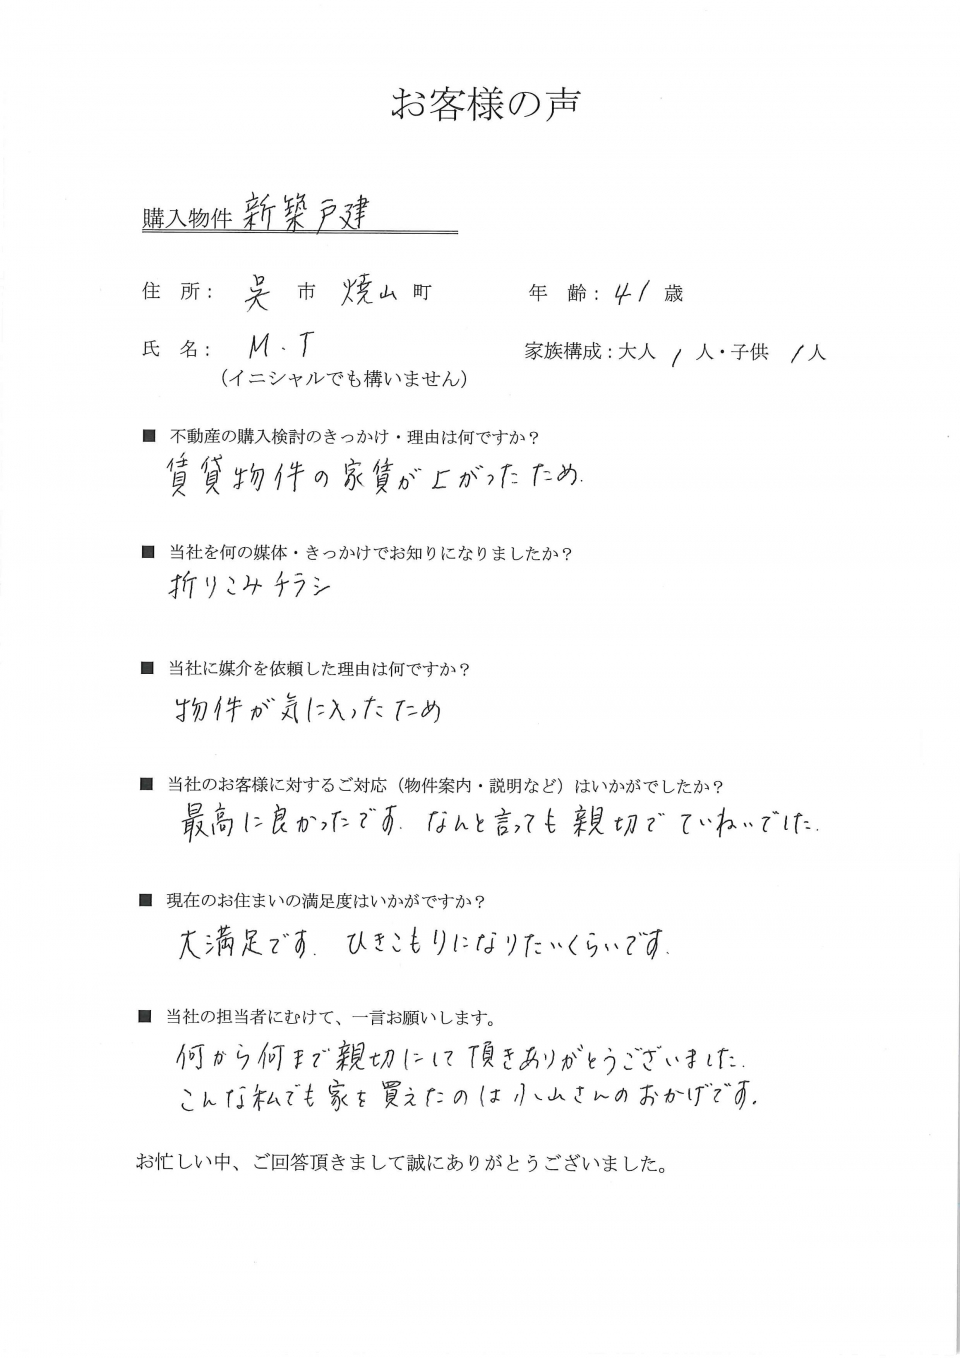 お客様の声
購入物件 新築戸建
住 所： 呉 市 焼山 町 年 齢：41 歳
氏 名： M.T 家族構成：大人 1 人・子供 1 人
（イニシャルでも構いません）
■ 不動産の購入検討のきっかけ・理由は何ですか？
賃貸物件の家賃が上がったため.
■ 当社を何の媒体・きっかけでお知りになりましたか？
折りこみチラシ
■ 当社に媒介を依頼した理由は何ですか？
物件が気に入ったため
■ 当社のお客様に対するご対応（物件案内・説明など）はいかがでしたか？
最高に良かったです. なんと言っても親切でていねいでした.
■ 現在のお住まいの満足度はいかがですか？
大満足です. ひきこもりになりたいくらいです.
■ 当社の担当者にむけて、一言お願いします。
何から何まで親切にして頂きありがとうございました.
こんな私でも家を買えたのは小山さんのおかげです.
お忙しい中、ご回答頂きまして誠にありがとうございました。